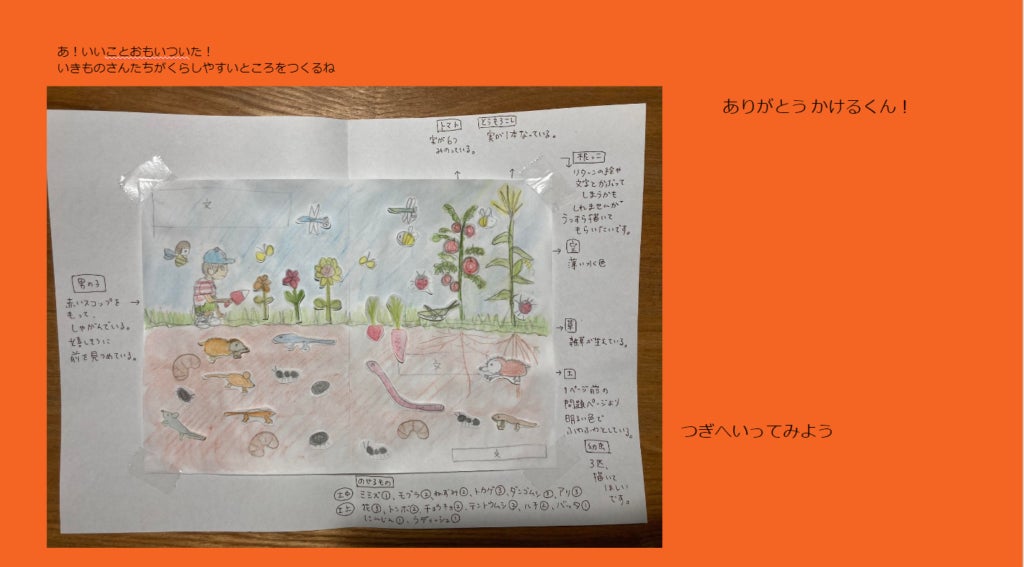 あ！いいことおもいついた！
いきものさんたちがくらしやすいところをつくるね
ありがとう かけるくん！
つぎへいってみよう
トマト
実が6つ
みのっている。
とうもろこし
実が1本なっている。
根っこ
リターンの絵や
文字とかぶって
しまうかも
しれませんが
うっすら描いて
もらいたいです。
空
薄い水色
草
雑草が生えている。
土
1ページ前の
問題ページより
明るい色で
ふわふわとしている。
幼虫
3匹、
描いて
ほしい
です。
男の子
赤いスコップを
もって、
しゃがんでいる。
嬉しそうに
前を見つめている。
文
文
文
のせるもの
土中 ミミズ①、モグラ②、ねずみ②、トカゲ③、ダンゴムシ③、アリ③
土上 花③、トンボ②、チョウチョ②、テントウムシ②、ハチ④、バッタ①
にんじん①、ラディッシュ①